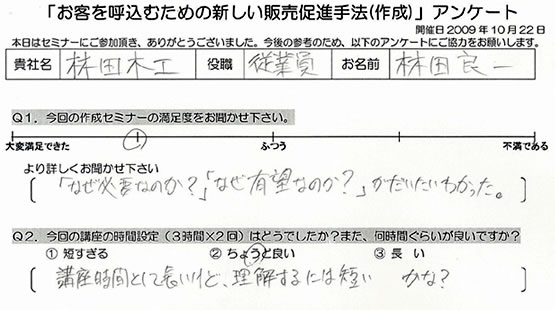 「お客を呼込むための新しい販売促進手法(作成)」アンケート
開催日2009年10月22日
本日はセミナーにご参加頂き、ありがとうございました。今後の参考のため、以下のアンケートにご協力をお願いします。
貴社名 林田木工 役職 従業員 お名前 林田良一
Q1．今回の作成セミナーの満足度をお聞かせ下さい。
大変満足できた ふつう 不満である
より詳しくお聞かせ下さい
「なぜ必要なのか？」「なぜ有望なのか？」がだいたいわかった。
Q2．今回の講座の時間設定（3時間×2回）はどうでしたか？また、何時間ぐらいが良いですか？
① 短すぎる ② ちょうど良い ③ 長い
講座時間として長いけど、理解するには短い かな？